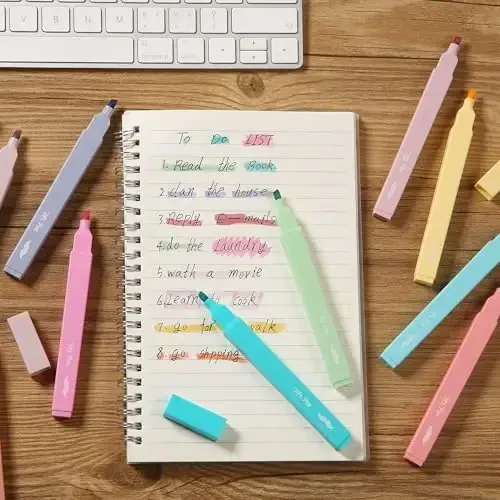 To Do LIST
1. Read the Book
2. clan the house
3. Reply E-mails
4. do the laundry
5. wath a movie
6. Learn to cook
7. go for walk
8. go shpping